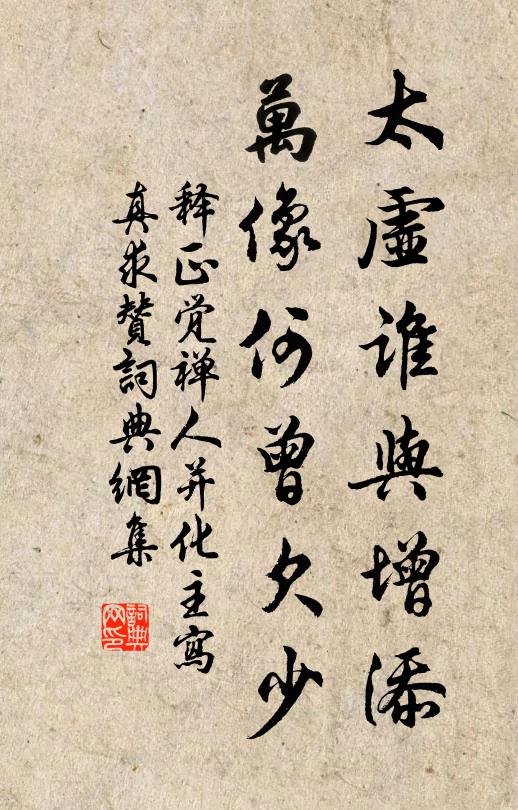 太虛誰與增添
萬像何曾欠少
释正觉禅人并化主寫
真求贊詞典網集
詞典網印